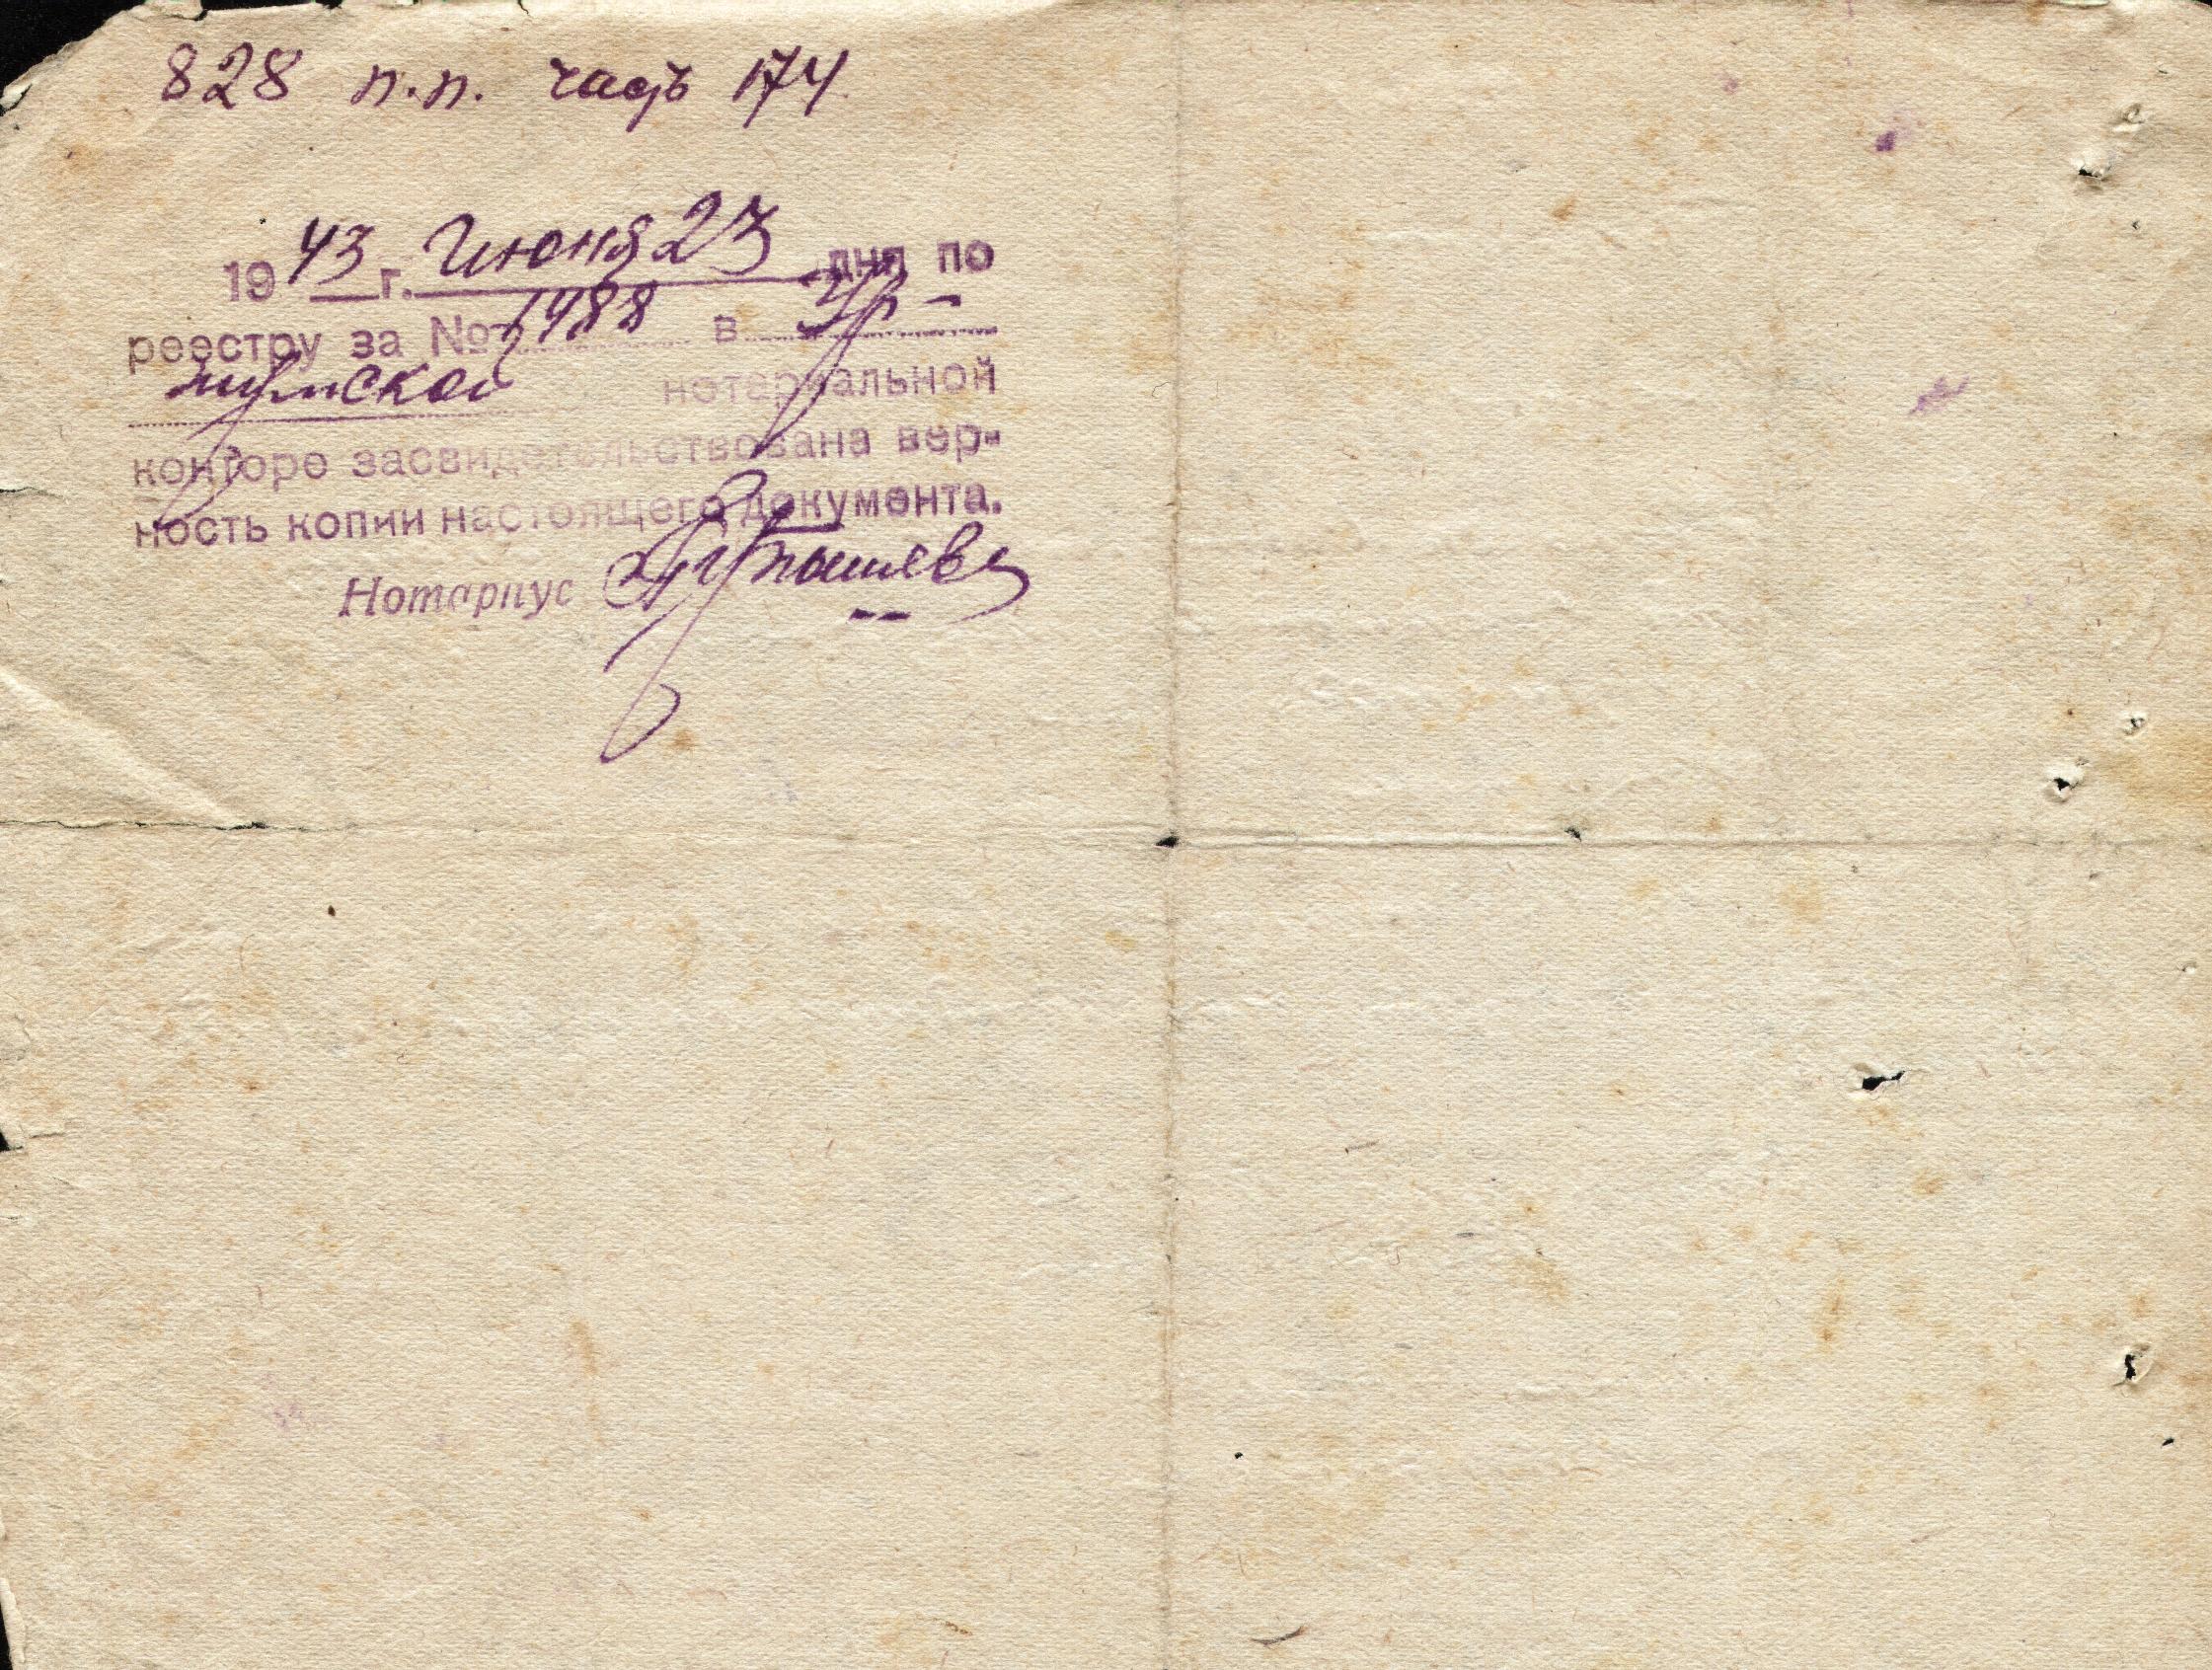 828 п.п. часть 174
1943 г. Июня 23 дня по
реестру за № 1988 в Ур-
жумской нотариальной
конторе засвидетельствована вер-
ность копии настоящего документа.
Нотариус